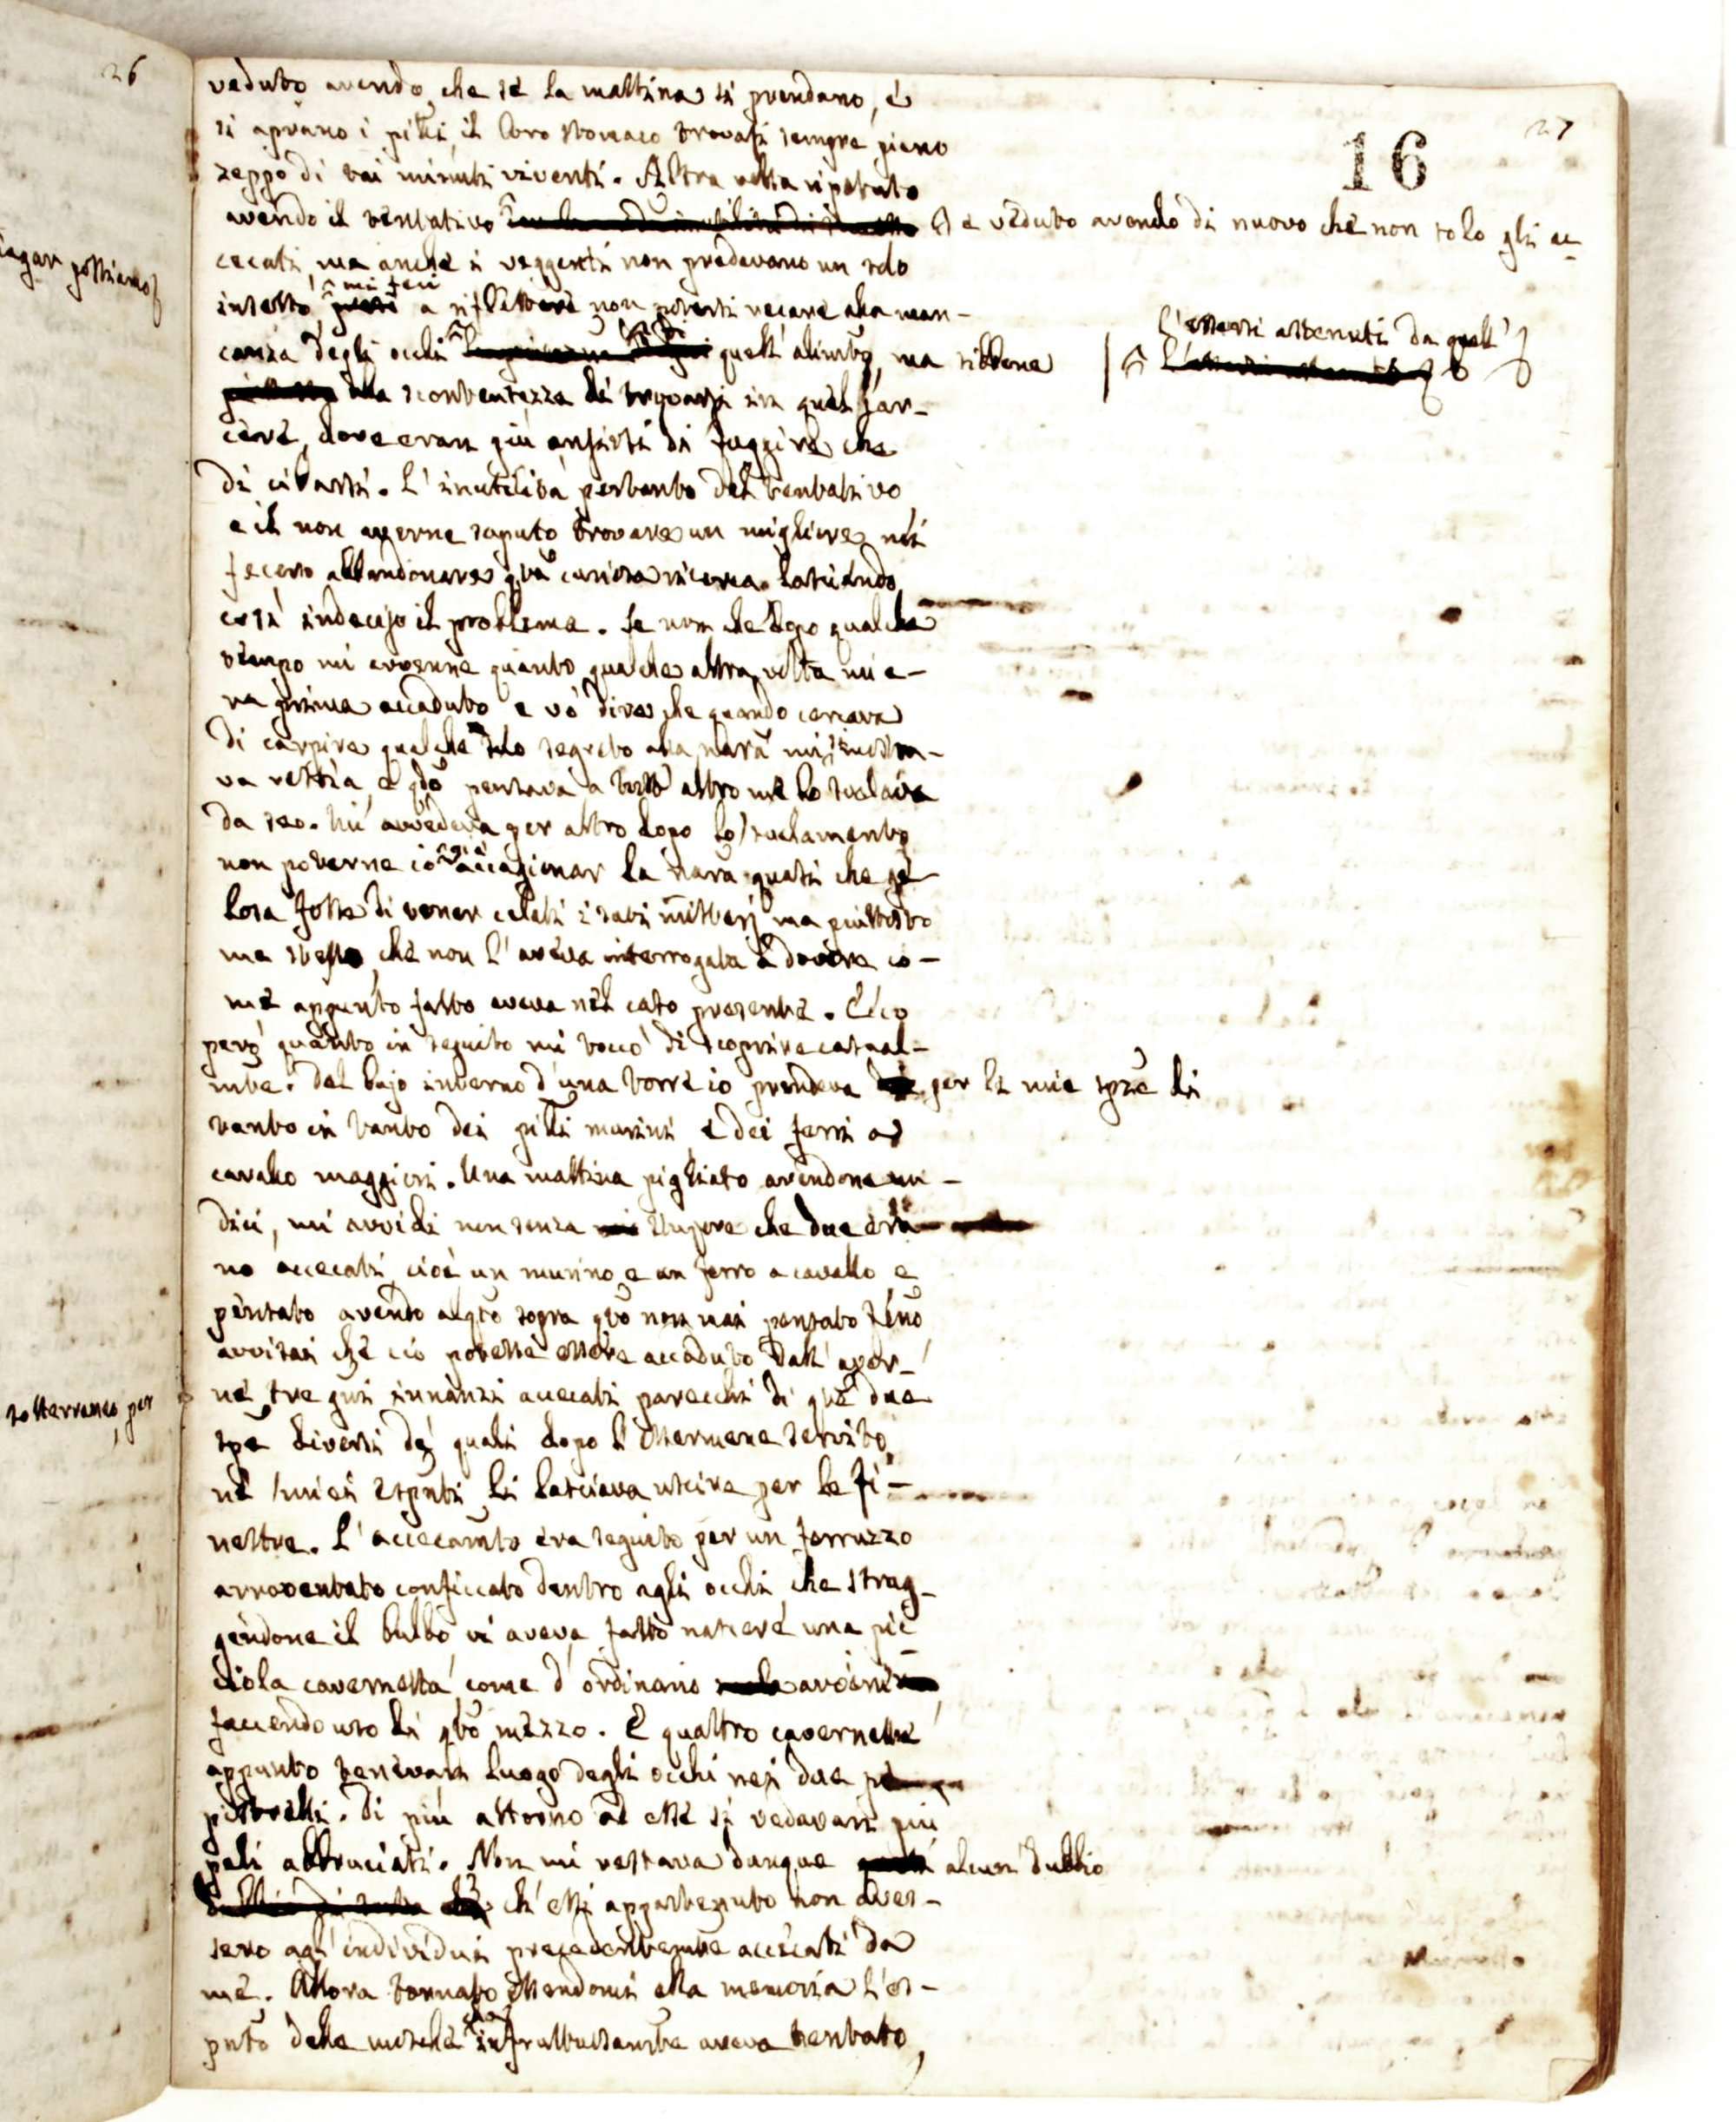 26
27
16
veduto avendo, che se la mattina si prendano, e
si aprano i pitti, il loro stomaco trovasi sempre pieno
zeppo di tai minuti viventi. Altra volta ripetuto
avendo il tentativo e veduto avendo di nuovo che non solo gli ac-
cecati, ma anche i veggenti non predavano un solo
insetto, mi feci a riflettere non potersi recare alla man-
canza degli occhi l'essersi astenuti da quell' alimto, ma sibbene
alla scontentezza di trovarsi in quel car-
cere, dove eran più ansiosi di fuggire che
di cibarsi. L'inutilità pertanto del tentativo
e il non averne saputo trovare un migliore mi
fecero abbandonare qta curiosa ricerca lasciando
così indeciso il problema. Se non che dopo qualche
tempo mi avvenne quanto qualche altra volta mi e-
ra prima accaduto e vo' dire che quando cercava
di carpire qualche suo segreto alla nara mi si mostra-
va restia, e qdo pensava a tutt' altro me lo svelava
da seo. Mi avvedeva per altro dopo lo svelamento
non poterne io già accagionar la nara quasi che ge-
losa fosse di tener celati i suoi misterj ma piuttosto
me stesso, che non l'aveva interrogata a dovere co-
me appunto fatto aveva nel caso presente. Ecco
però quanto in seguito mi toccò di scoprire casual-
mte. Dal bujo interno d'una torre io prendeva per le mie spze di
tanto in tanto dei pitti murini, e dei ferri a
cavallo maggiori. Una mattina pigliato avendone un-
dici, mi avvidi non senza stupore che due era-
no accecati, cioè un murino, e un ferro a cavallo, e
pensato avendo alqto sopra qto non mai pensato feno
avvisai che ciò potesse essere accaduto dall' aver-
ne tre gni innanzi accecati parecchi di qte due
spe diversi de' quali dopo l'essermene servito
ne' miei esptti li lasciava uscire per le fi-
nestre. L'accecamto era seguito per un ferruzzo
arroventato conficcato dentro agli occhi che strug-
gendone il bulbo vi aveva fatto nascere una pic-
ciola cavernetta, come d'ordinario avviene
facendo uso di qto mezzo. E quattro cavernette
appunto tenevan luogo degli occhi nei due
pistrelli. Di più attorno ad esse si vedevan più
peli abbruciati. Non mi restava dunque alcun dubbio
ch' essi appartenuto non aves-
sero agl' individui precedentemte accecati da
me. Allora tornato essendomi alla memoria l'es-
pnto delle mosche infruttuosamte aveva tentato,
iagar possiamo
sotterraneo, per